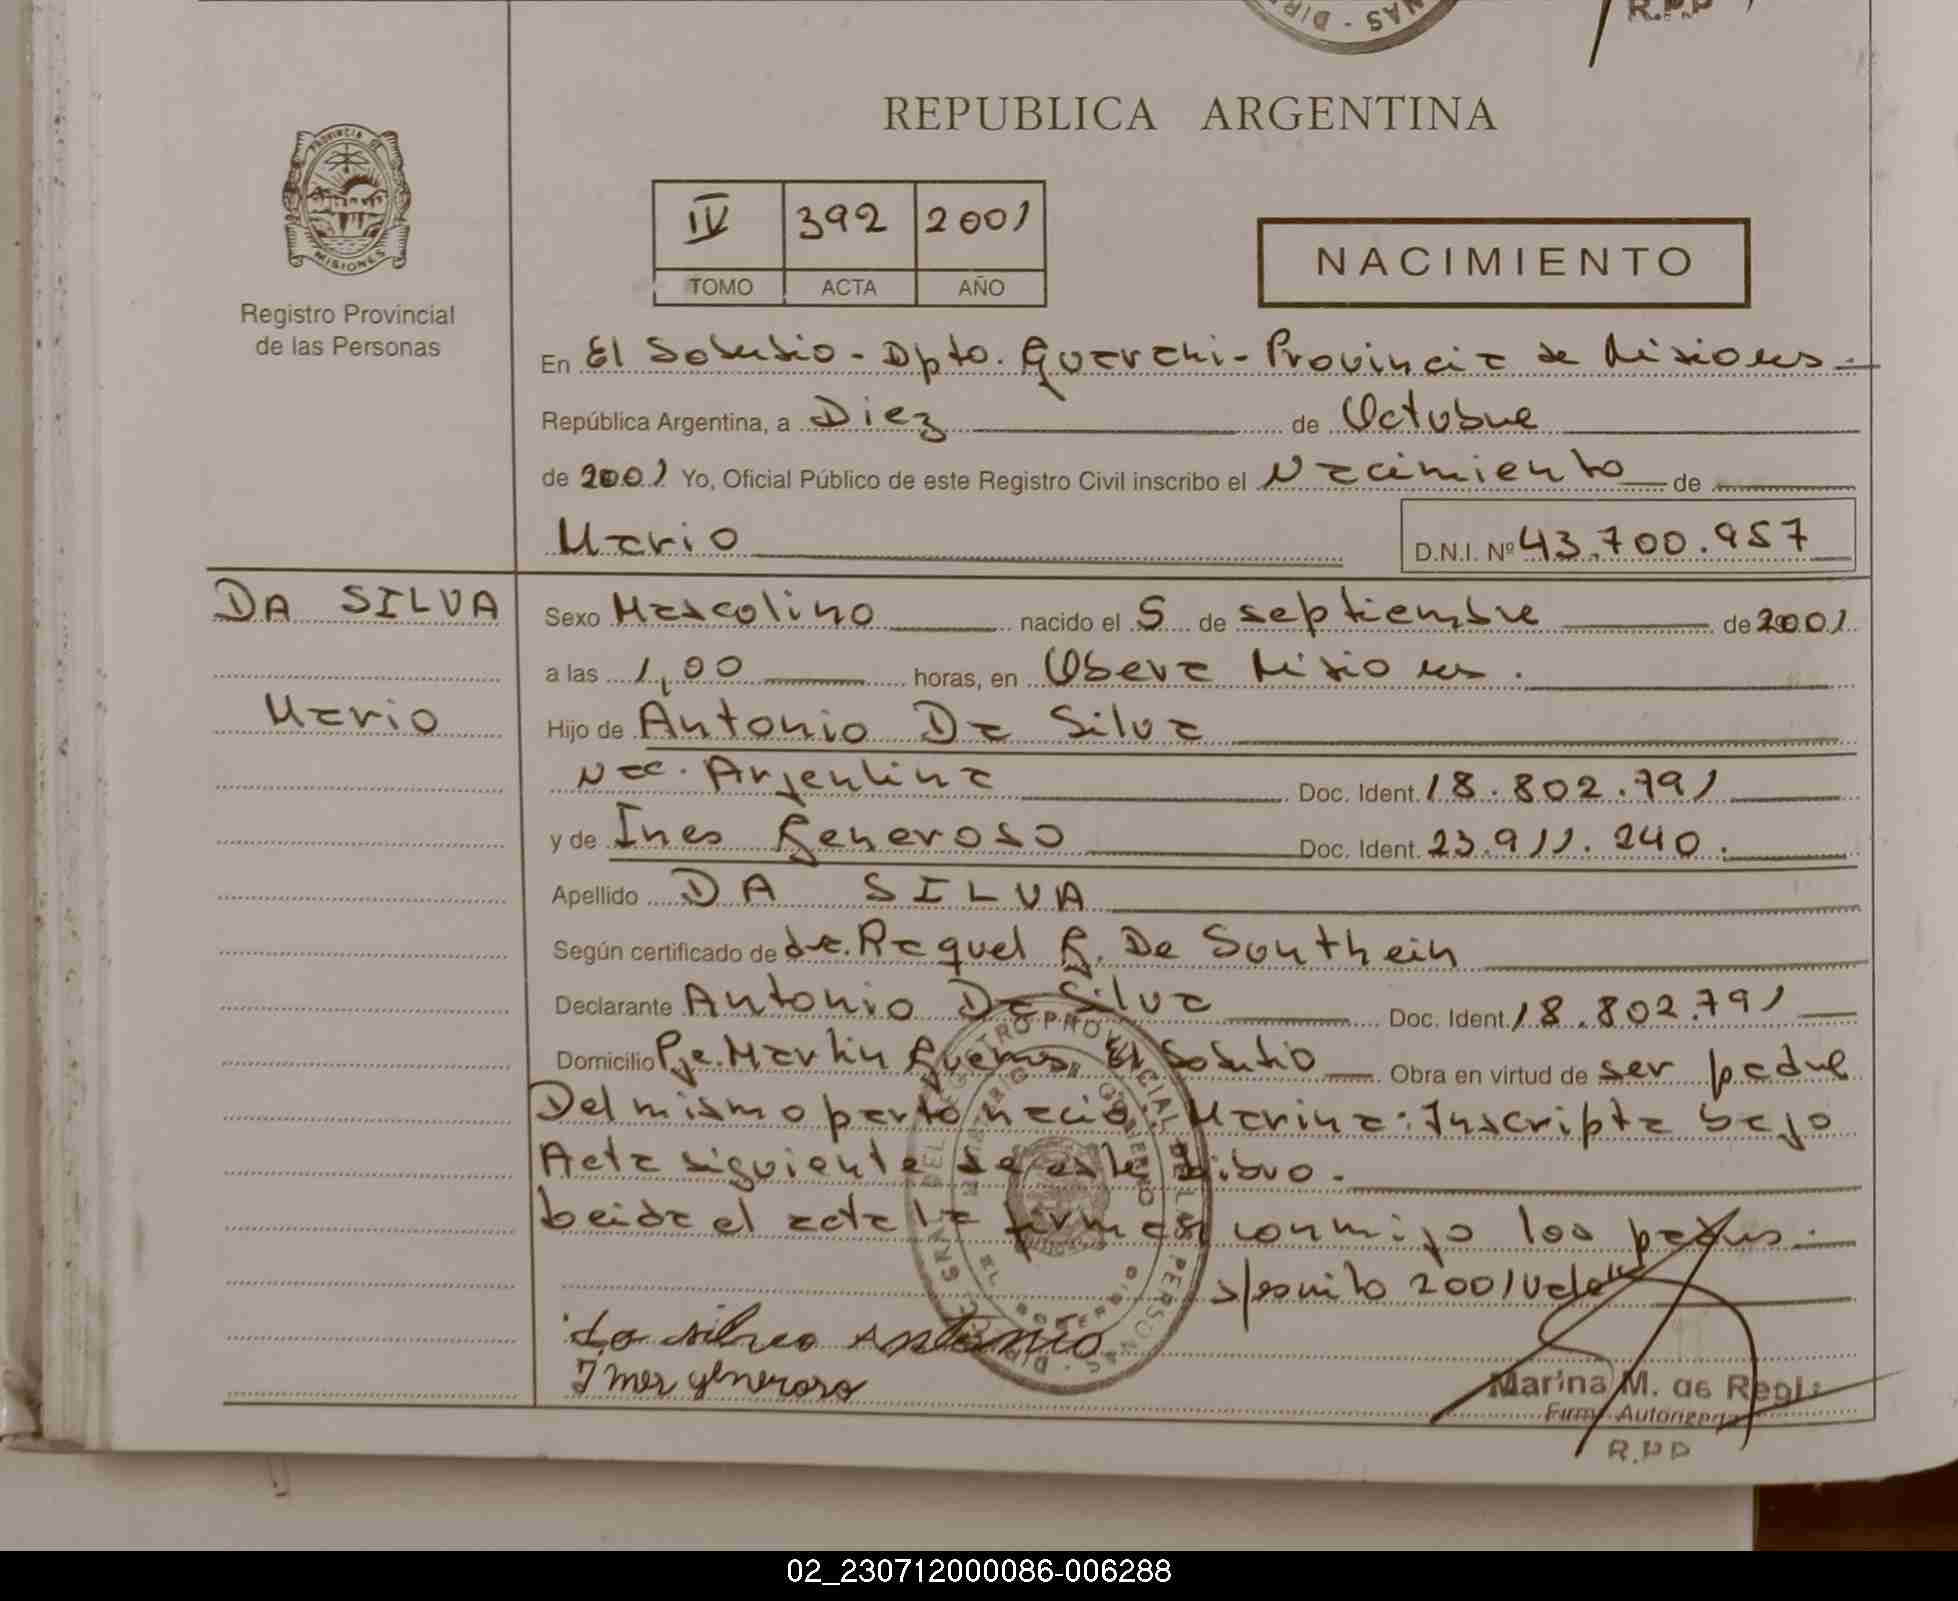 REPUBLICA ARGENTINA
PROVINCIA DE
MISIONES
Registro Provincial
de las Personas
IV 392 2001
TOMO ACTA AÑO
NACIMIENTO
En El Soberbio - Dpto. Guarani - Provincia de Misiones.
República Argentina, a Diez de Octubre
de 2001 Yo, Oficial Público de este Registro Civil inscribo el Nacimiento de
Mario D.N.I. Nº 43.700.957
DA SILVA
Mario
Sexo Masculino nacido el 5 de septiembre de 2001
a las 1,00 horas, en Obera Misiones.
Hijo de Antonio Da Silva
Nac. Argentina Doc. Ident. 18.802.791
y de Ines Generoso Doc. Ident. 23.911.240.
Apellido DA SILVA
Según certificado de dra. Raquel G. De Sonthein
Declarante Antonio Da Silva Doc. Ident. 18.802.791
Domicilio Pje. Martin Guemes El Soberbio Obra en virtud de ser padre
Del mismo parto nacio: Marina: Inscripta bajo
Acta siguiente de este Libro.
Leida el acta la firman conmigo los padres.
s/escrito 2001 Vale
Da silva Antonio
Ines generoso
Marina M. de
Firma Autorizada
R.P.P
02_230712000086-006288